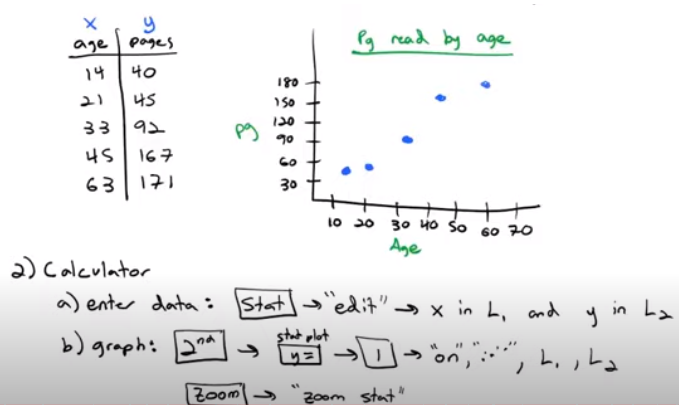 x y
age pages
14 40
21 45
33 92
45 167
63 171
Pg read by age
180
150
120
90
60
30
pg
10 20 30 40 50 60 70
Age
2) Calculator
a) enter data: Stat → "edit" → x in L₁ and y in L₂
b) graph: 2nd → stat plot y= → 1 → "on", "⋰", L₁, L₂
Zoom → "zoom stat"